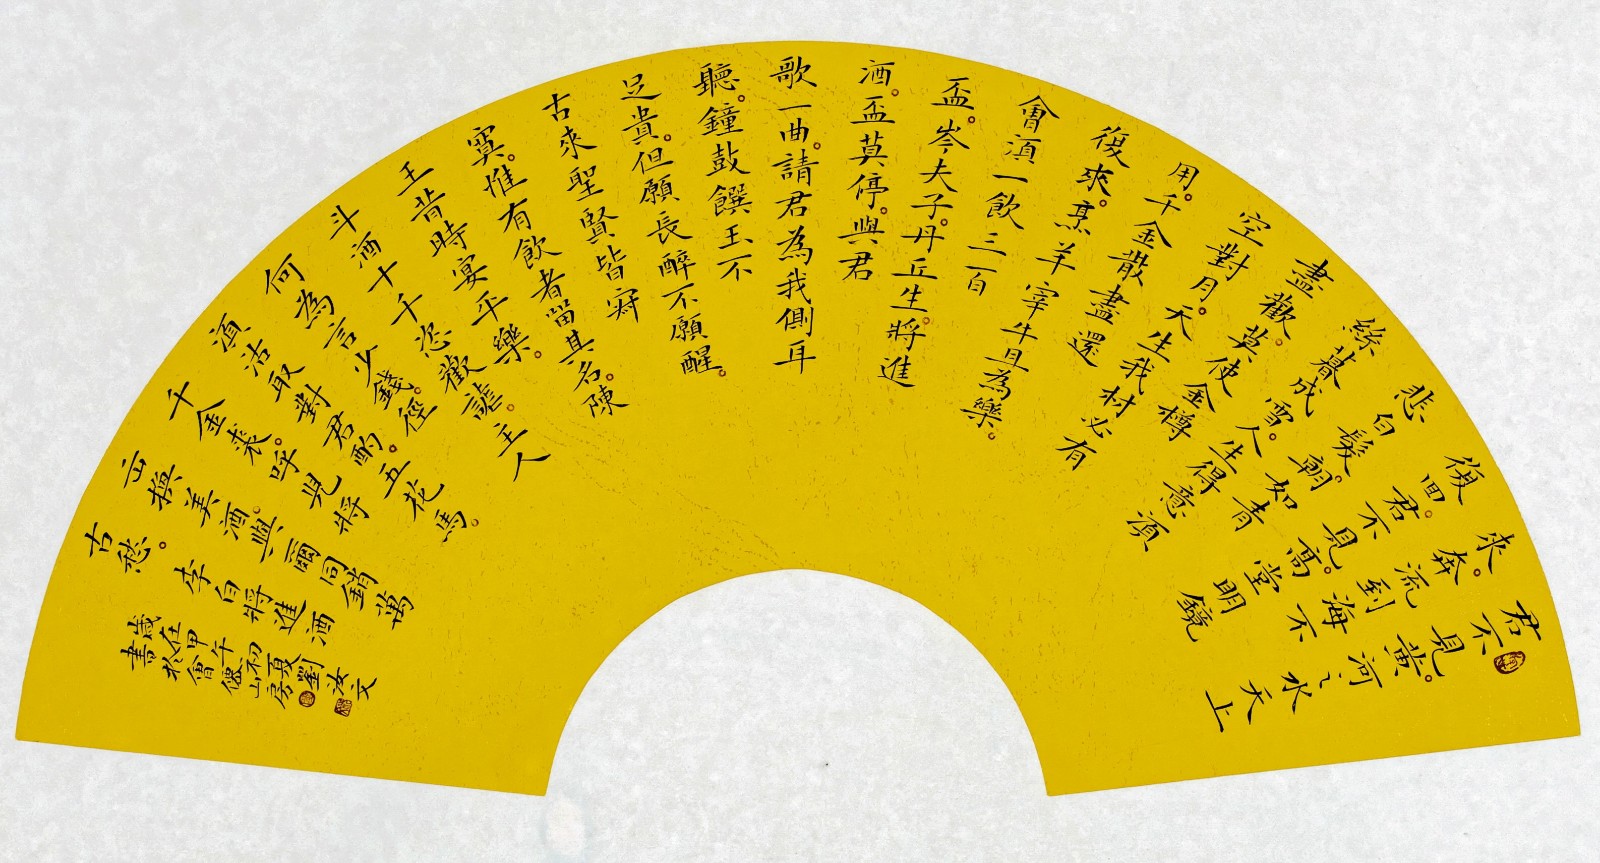 君不見。黃河之水天上
來。奔流到海不
復回。君不見。高堂明鏡
悲白髮。朝如青
絲暮成雪。人生得意須
盡歡。莫使金樽
空對月。天生我材必有
用。千金散盡還
復來。烹羊宰牛且為樂。
會須一飲三百
盃。岑夫子。丹丘生。將進
酒。盃莫停。與君
歌一曲。請君為我側耳
聽。鐘鼓饌玉不
足貴。但願長醉不願醒。
古來聖賢皆寂
寞。惟有飲者留其名。陳
王昔時宴平樂。
斗酒十千恣歡謔。主人
何為言少錢。徑
須沽取對君酌。五花馬。
千金裘。呼兒將
出換美酒。與爾同銷萬
古愁。李白將進酒
歲在甲午初夏劉汝文
書於會僊山房